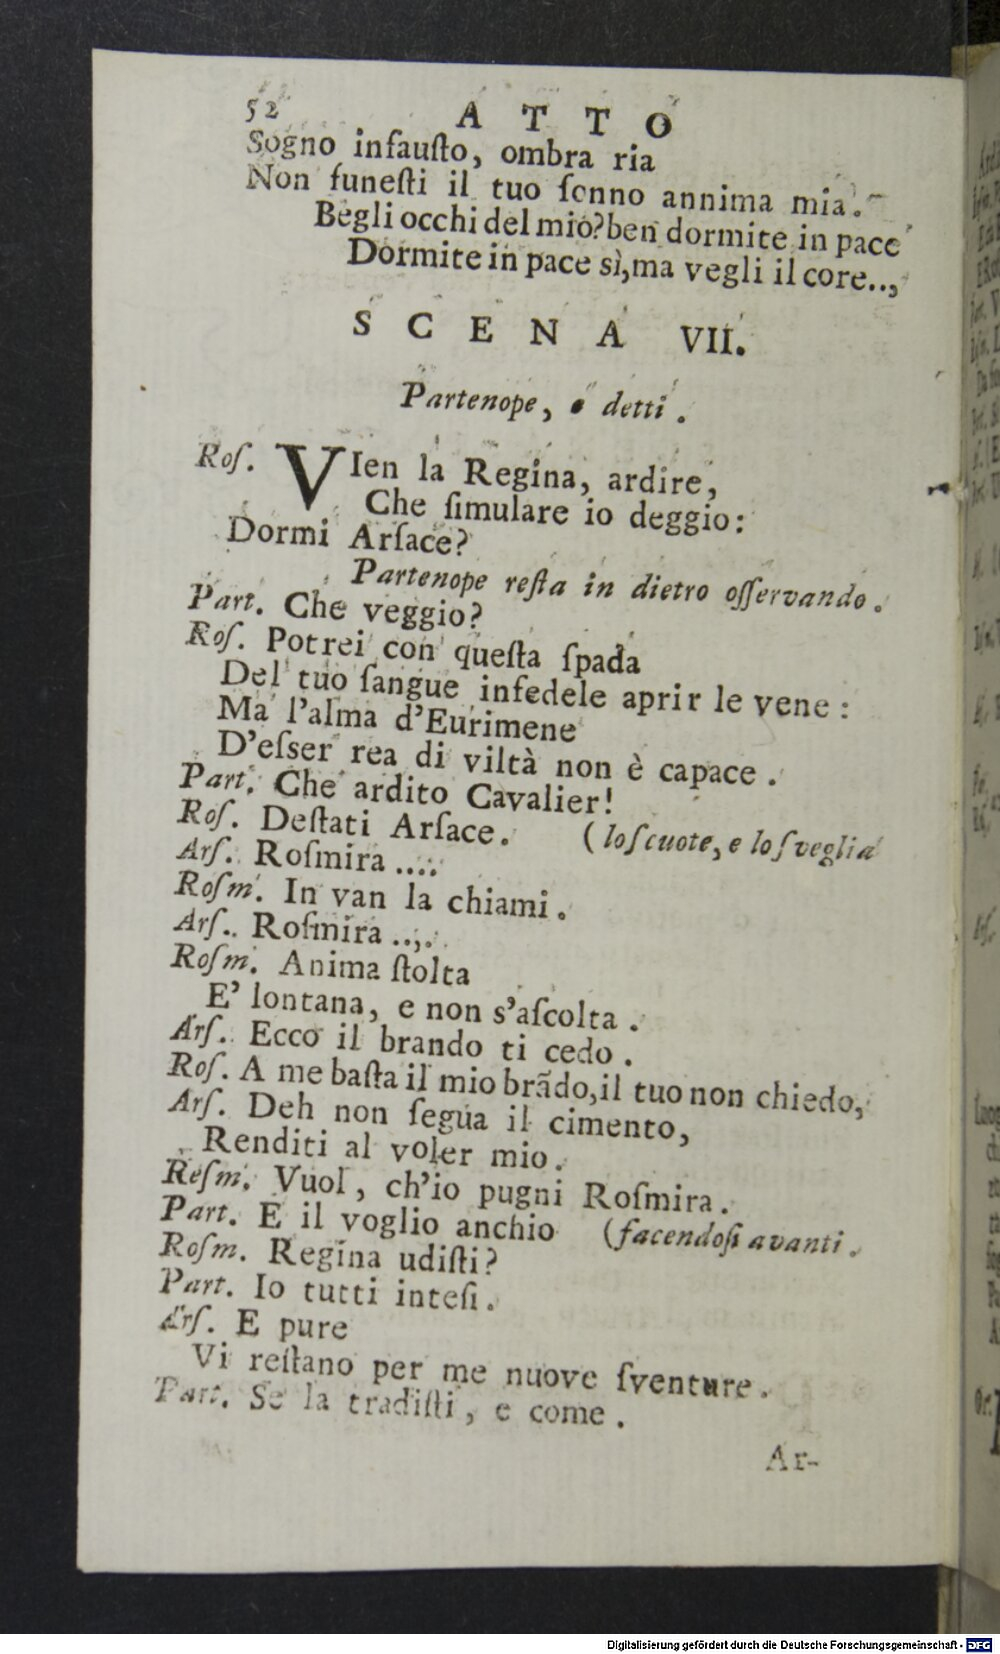 52 ATTO
Sogno infauſto, ombra ria
Non funeſti il tuo ſonno annima mia.
Begli occhi del mio? ben dormite in pace
Dormite in pace sì, ma vegli il core..,
SCENA VII.
Partenope, e detti.
Roſ. VIen la Regina, ardire,
Che ſimulare io deggio:
Dormi Arſace?
Partenope reſta in dietro oſſervando.
Part. Che veggio?
Roſ. Potrei con queſta ſpada
Del tuo ſangue infedele aprir le vene:
Ma l'alma d'Eurimene
D'eſser rea di viltà non è capace.
Part. Che ardito Cavalier!
Roſ. Deſtati Arſace. (lo ſcuote, e lo ſveglia
Arſ. Roſmira ....
Roſm. In van la chiami.
Arſ. Roſmira ..,.
Roſm. Anima ſtolta
E' lontana, e non s'aſcolta.
Arſ. Ecco il brando ti cedo.
Roſ. A me baſta il mio brãdo, il tuo non chiedo,
Arſ. Deh non ſegua il cimento,
Renditi al voler mio.
Reſm. Vuol, ch'io pugni Roſmira.
Part. E il voglio anchio (facendoſi avanti.
Roſm. Regina udiſti?
Part. Io tutti inteſi.
Arſ. E pure
Vi reſtano per me nuove ſventure.
Part. Se la tradiſti, e come.
Ar-
Digitalisierung gefördert durch die Deutsche Forschungsgemeinschaft - DFG